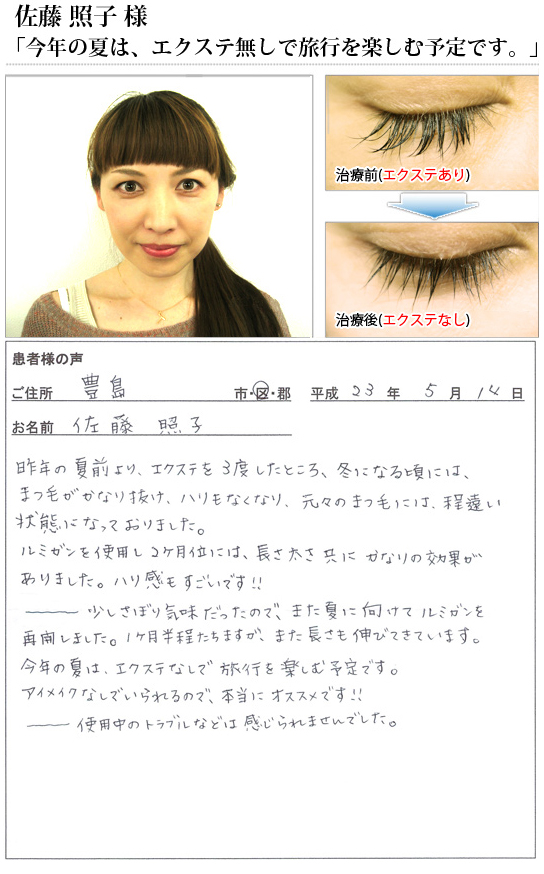 佐藤 照子 様
「今年の夏は、エクステ無しで旅行を楽しむ予定です。」
治療前(エクステあり)
治療後(エクステなし)
患者様の声
ご住所 豊島 市・区・郡 平成 23 年 5 月 14 日
お名前 佐藤 照子
昨年の夏前より、エクステを3度したところ、冬になる頃には、
まつ毛がかなり抜け、ハリもなくなり、元々のまつ毛には、程遠い
状態になっておりました。
ルミガンを使用し2ヶ月位には、長さ太さ共にかなりの効果が
ありました。ハリ感もすごいです!!
――― 少しさぼり気味だったので、また夏に向けてルミガンを
再開しました。1ヶ月半程たちますが、また長さも伸びてきています。
今年の夏は、エクステなしで旅行を楽しむ予定です。
アイメイクなしでいられるので、本当にオススメです!!
――― 使用中のトラブルなどは感じられませんでした。